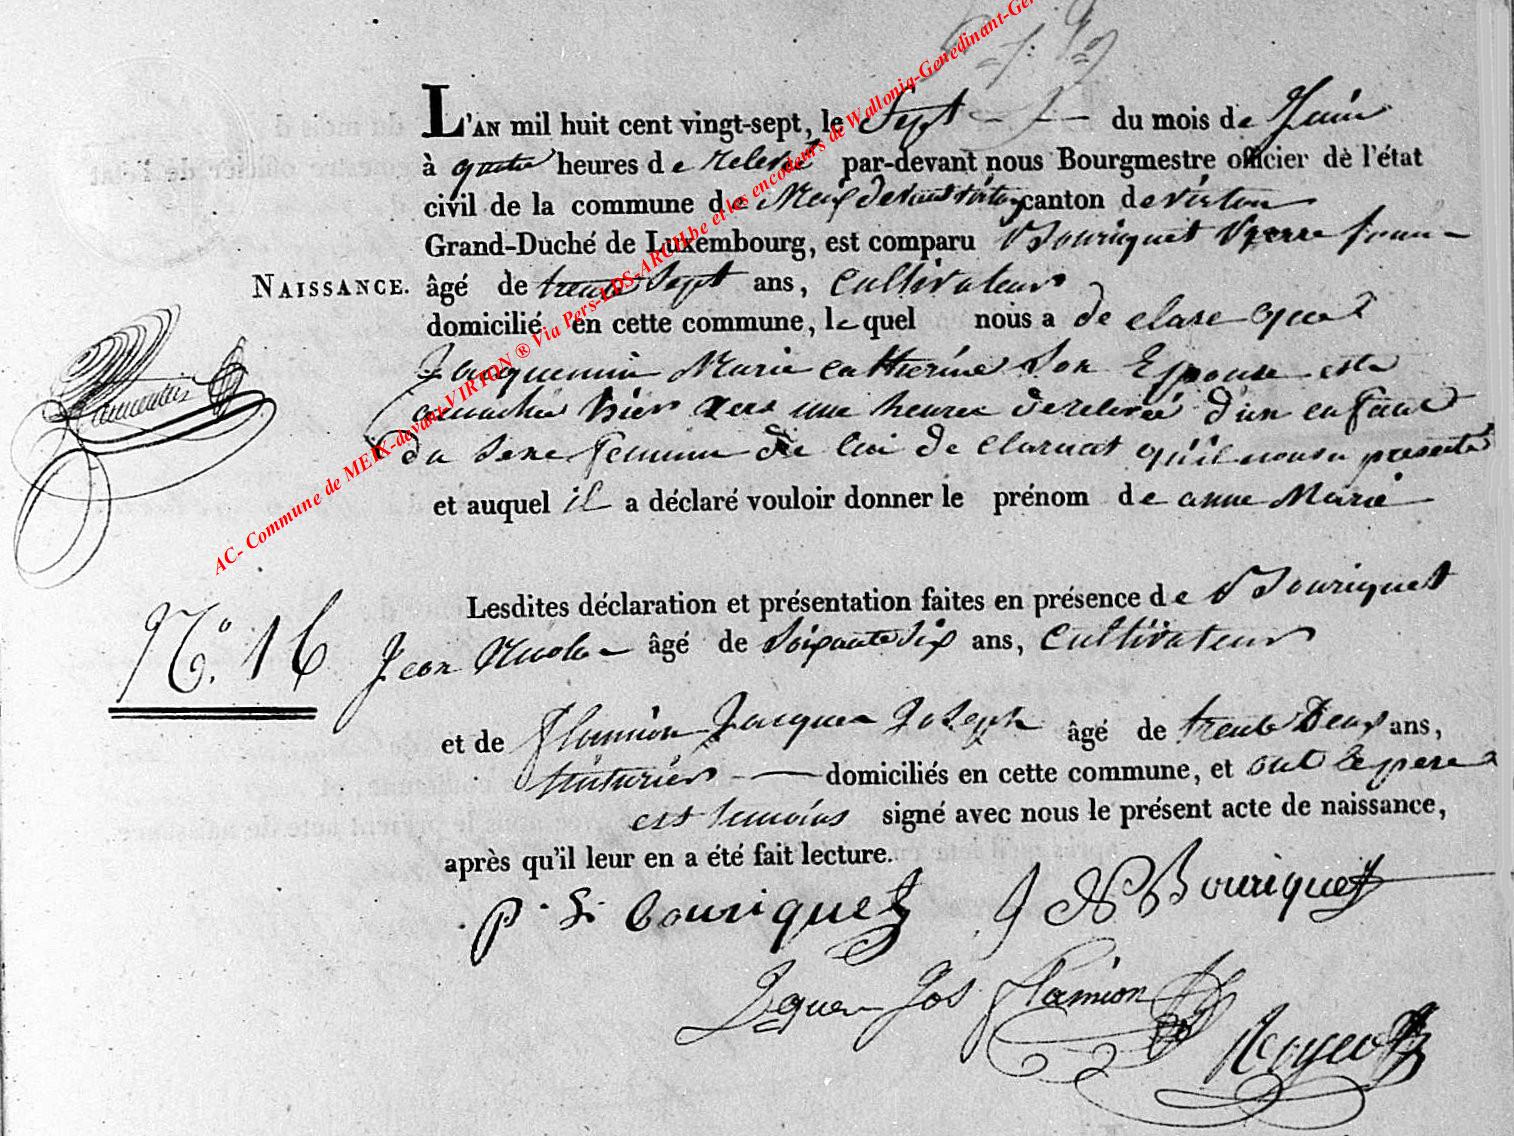 L'AN mil huit cent vingt-sept, le Sept du mois de Juin
à quatre heures de relevé par-devant nous Bourgmestre officier dè l'état
civil de la commune de Meix devant virton canton de virton
Grand-Duché de Luxembourg, est comparu Bouriquet pierre
NAISSANCE. âgé de trente Sept ans, Cultivateur
domicilié en cette commune, le quel nous a de clare que
Jacquemin Marie catherine Son Epouse est
accouchée hier vers une heure de relevée d'un enfant
du sexe feminin de lui de clarant qu'il nous a presenté
et auquel il a déclaré vouloir donner le prénom de anne Marie
Lesdites déclaration et présentation faites en présence de Bouriquet
N.° 16
Jean Nicolas âgé de Soixante Six ans, Cultivateur
et de flamion Jacques Joseph âgé de trente Deux ans,
teinturier domiciliés en cette commune, et ont le pere
est temoins signé avec nous le présent acte de naissance,
après qu'il leur en a été fait lecture.
p. f. bouriquet J N Bouriquet
Jques Jos flamion
AC- Commune de MEIX-devant-VIRTON ® Via Pers-LDS-ARCH.be et les encodeurs de Wallonia-Genedinant-Ge